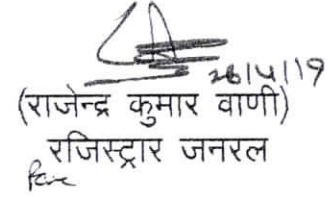 26/4/19
(राजेन्द्र कुमार वाणी)
रजिस्ट्रार जनरल